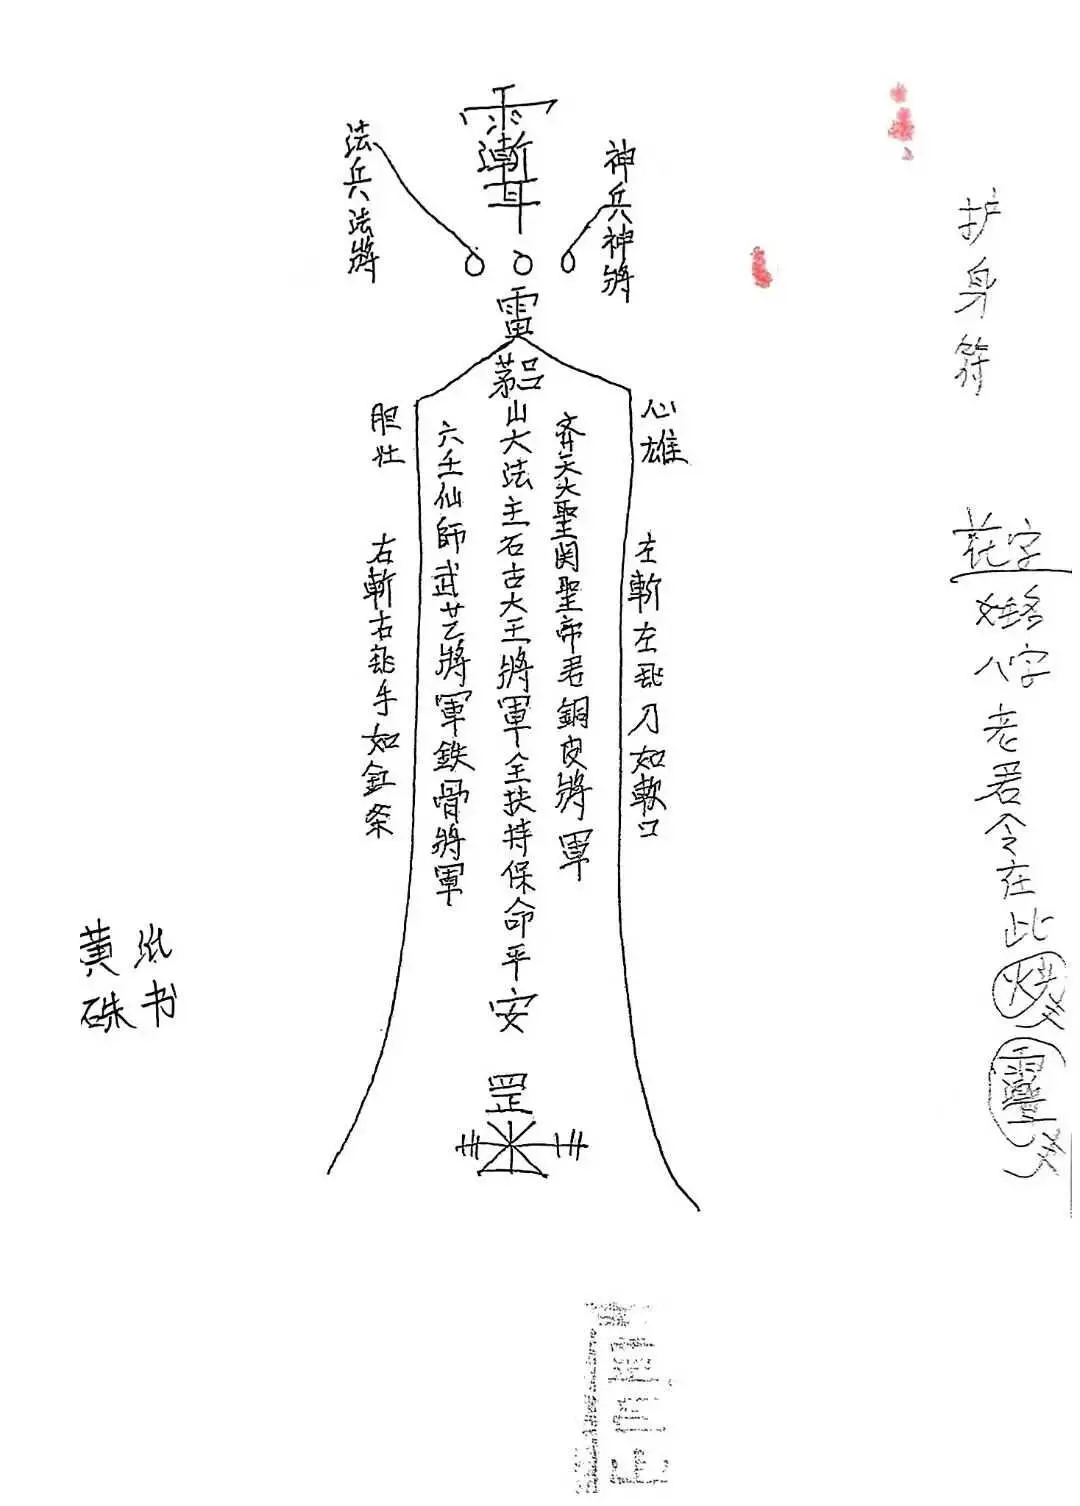 护身符
花字
姓名
八字
老君令在此
神兵神將
法兵法將
雷
心雄
胆壮
左斬左飛刀如軟口
齐天大聖関聖帝君銅皮將軍
茅山大法主石古大王將軍全扶持保命平安
六壬仙師武艺將軍鉄骨將軍
右斬右飛手如釭条
罡
黄纸
硃书